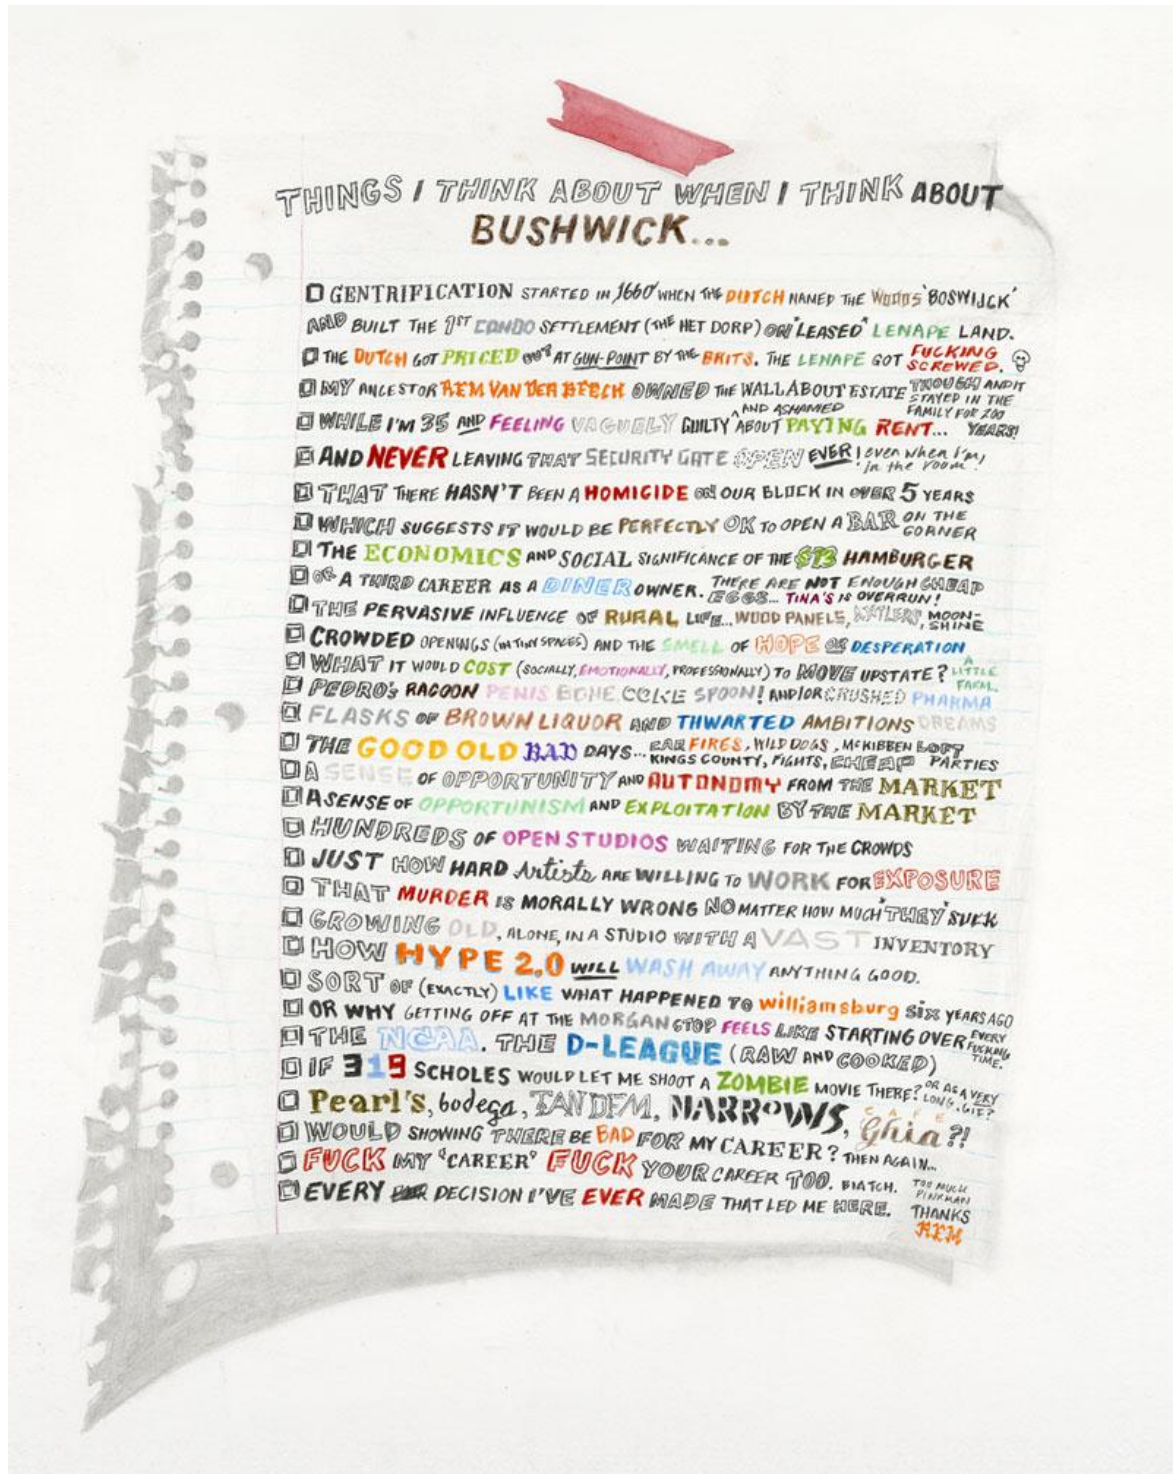 THINGS I THINK ABOUT WHEN I THINK ABOUT
BUSHWICK...
GENTRIFICATION STARTED IN 1660 WHEN THE DUTCH NAMED THE WOODS 'BOSWIJCK'
AND BUILT THE 1ST CONDO SETTLEMENT (THE HET DORP) ON "LEASED" LENAPE LAND.
THE DUTCH GOT PRICED OUT AT GUN-POINT BY THE BRITS. THE LENAPE GOT FUCKING SCREWED.
MY ANCESTOR REM VAN DER BEECK OWNED THE WALLABOUT ESTATE THOUGH AND IT STAYED IN THE FAMILY FOR 200 YEARS!
WHILE I'M 35 AND FEELING VAGUELY GUILTY ^AND ASHAMED ABOUT PAYING RENT...
AND NEVER LEAVING THAT SECURITY GATE OPEN EVER! even when I'm in the room!
THAT THERE HASN'T BEEN A HOMICIDE ON OUR BLOCK IN OVER 5 YEARS
WHICH SUGGESTS IT WOULD BE PERFECTLY OK TO OPEN A BAR ON THE CORNER
THE ECONOMICS AND SOCIAL SIGNIFICANCE OF THE $13 HAMBURGER
OF A THIRD CAREER AS A DINER OWNER. THERE ARE NOT ENOUGH CHEAP EGGS... TINA'S IS OVERRUN!
THE PERVASIVE INFLUENCE OF RURAL LIFE... WOOD PANELS, ANTLERS, MOON-SHINE
CROWDED OPENINGS (IN TINY SPACES) AND THE SMELL OF HOPE OR DESPERATION
WHAT IT WOULD COST (SOCIALLY, EMOTIONALLY, PROFESSIONALLY) TO MOVE UPSTATE? A LITTLE FARM.
PEDRO'S RACOON PENIS BONE COKE SPOON! AND/OR CRUSHED PHARMA
FLASKS OF BROWN LIQUOR AND THWARTED AMBITIONS DREAMS
THE GOOD OLD BAD DAYS... CAR FIRES, WILD DOGS, MCKIBBEN LOFT PARTIES KINGS COUNTY, FIGHTS, CHEAP
A SENSE OF OPPORTUNITY AND AUTONOMY FROM THE MARKET
A SENSE OF OPPORTUNISM AND EXPLOITATION BY THE MARKET
HUNDREDS OF OPEN STUDIOS WAITING FOR THE CROWDS
JUST HOW HARD Artists ARE WILLING TO WORK FOR EXPOSURE
THAT MURDER IS MORALLY WRONG NO MATTER HOW MUCH "THEY" SUCK
GROWING OLD, ALONE, IN A STUDIO WITH A VAST INVENTORY
HOW HYPE 2.0 WILL WASH AWAY ANYTHING GOOD.
SORT OF (EXACTLY) LIKE WHAT HAPPENED TO williamsburg SIX YEARS AGO
OR WHY GETTING OFF AT THE MORGAN STOP FEELS LIKE STARTING OVER EVERY FUCKING TIME.
THE NCAA. THE D-LEAGUE (RAW AND COOKED)
IF 319 SCHOLES WOULD LET ME SHOOT A ZOMBIE MOVIE THERE? OR AS A VERY LONG .GIF?
Pearl's, bodega, TANDEM, NARROWS, CAFE Ghia?!
WOULD SHOWING THERE BE BAD FOR MY CAREER? THEN AGAIN...
FUCK MY "CAREER" FUCK YOUR CAREER TOO. BIATCH. TOO MUCH PINKMAN
EVERY DECISION I'VE EVER MADE THAT LED ME HERE. THANKS
REM